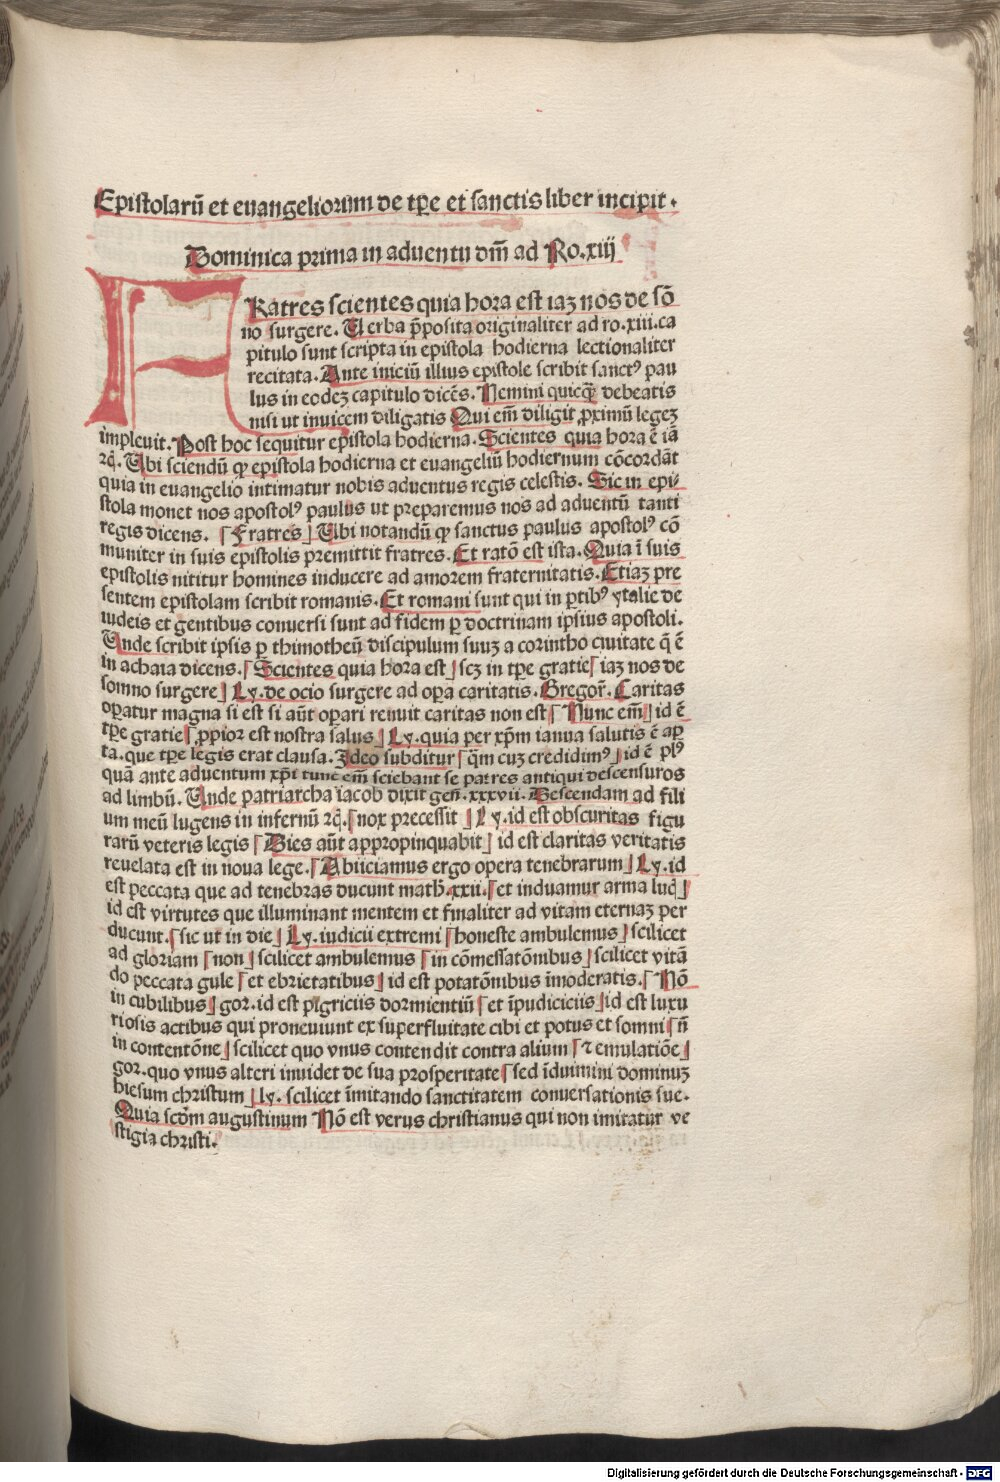 Epistolarū et euangeliorum de tp̄e et sanctis liber incipit.
Dominica prima in aduentu dm̄ ad Ro.xiij
FRatres scientes quia hora est iaʒ nos de sō
no surgere. Uerba p̄posita originaliter ad ro.xiii.ca
pitulo sunt scripta in epistola hodierna lectionaliter
recitata. Ante iniciū illius epistole scribit sanctꝰ pau
lus in eodeʒ capitulo dicēs. Nemini quicqꝫ debeatis
nisi ut inuicem diligatis Qui em̄ diligit ꝓximū legeʒ
impleuit. Post hoc sequitur epistola hodierna. Scientes quia hora ē iā
ꝛꝗ. Ubi sciendū ꝙ epistola hodierna et euangeliū hodiernum cōcordāt
quia in euangelio intimatur nobis aduentus regis celestis. Sic in epi-
stola monet nos apostolꝰ paulus ut preparemus nos ad aduentū tanti
regis dicens. [Fratres] Ubi notandū ꝙ sanctus paulus apostolꝰ cō
muniter in suis epistolis premittit fratres. Et ratō est ista. Quia ī suis
epistolis nititur homines inducere ad amorem fraternitatis. Etiaʒ pre
sentem epistolam scribit romanis. Et romani sunt qui in ꝑtibꝰ ytalie de
iudeis et gentibus conuersi sunt ad fidem ꝑ doctrinam ipsius apostoli.
Unde scribit ipsis ꝑ thimotheū discipulum suuʒ a corintho ciuitate q̄ ē
in achaia dicens. [Scientes quia hora est] scʒ in tp̄e gratie [iaʒ nos de
somno surgere] Ly. de ocio surgere ad oꝑa caritatis. Gregor̄. Caritas
oꝑatur magna si est si aūt oꝑari renuit caritas non est [Nunc em̄] id ē
tp̄e gratie [ꝓpior est nostra salus] Ly. quia per xp̄m ianua salutis ē aꝑ
ta. que tp̄e legis erat clausa. Ideo subditur [q̄m cuʒ credidimꝰ] id ē plꝰ
quā ante aduentum xp̄i tunc em̄ sciebant se patres antiqui descensuros
ad limbū. Unde patriarcha iacob dixit gen̄. xxxvii. Descendam ad fili
um meū lugens in infernū ꝛꝗ. [nox precessit] Ly. id est obscuritas figu
rarū veteris legis [Dies aūt appropinquabit] id est claritas veritatis
reuelata est in noua lege. [Abiiciamus ergo opera tenebrarum] Ly. id
est peccata que ad tenebras ducunt math. xxii. [et induamur arma luc̄]
id est virtutes que illuminant mentem et finaliter ad vitam eternaʒ per
ducunt. [sic ut in die] Ly. iudicii extremi [honeste ambulemus] scilicet
ad gloriam [non] scilicet ambulemus [in cōmessatōnibus] scilicet vitā
do peccata gule [et ebrietatibus] id est potatōnibus īmoderatis. [Nō
in cubilibus] gor. id est pigriciis dormientiū [et īpudiciciis] id est luxu
riosis actibus qui proueniunt ex superfluitate cibi et potus et somni [n̄
in contentōne] scilicet quo vnus contendit contra alium [⁊ emulatiōe]
gor. quo vnus alteri inuidet de sua prosperitate [sed īduimini dominuʒ
hiesum christum] ly. scilicet īmitando sanctitatem conuersationis sue.
Quia scd̄m augustinum Nō est verus christianus qui non imitatur ve
stigia christi.
Digitalisierung gefördert durch die Deutsche Forschungsgemeinschaft - DFG